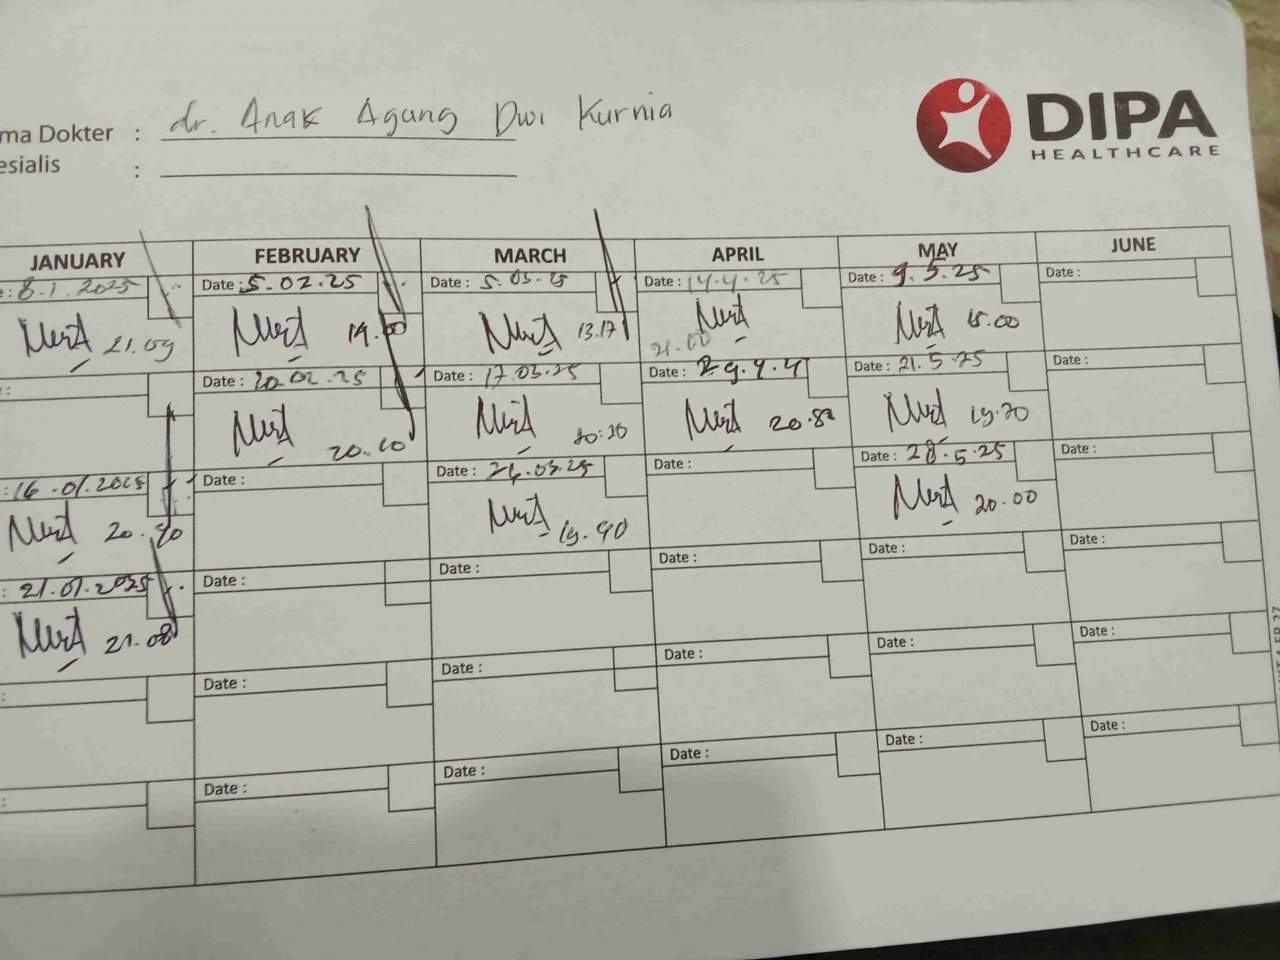 ma Dokter : dr. Anak Agung Dwi Kurnia
esialis :
DIPA
HEALTHCARE
JANUARY FEBRUARY MARCH APRIL MAY JUNE
: 8.1.2025 Date : 5.02.25 Date : 5.03.25 Date : 14.4.25 Date : 9.5.25 Date :
21.09 19.00 13.17 21.00 15.00
: Date : 20.02.25 Date : 17.03.25 Date : 29.4.4 Date : 21.5.25 Date :
20.10 20:20 19.20
: 16.01.2025 Date : Date : 26.03.25 Date : Date : 28.5.25 Date :
20. 19.40 20.00
: 21.01.2025 Date : Date : Date : Date : Date :
21.08
: Date : Date : Date : Date : Date :
: Date : Date : Date : Date : Date :